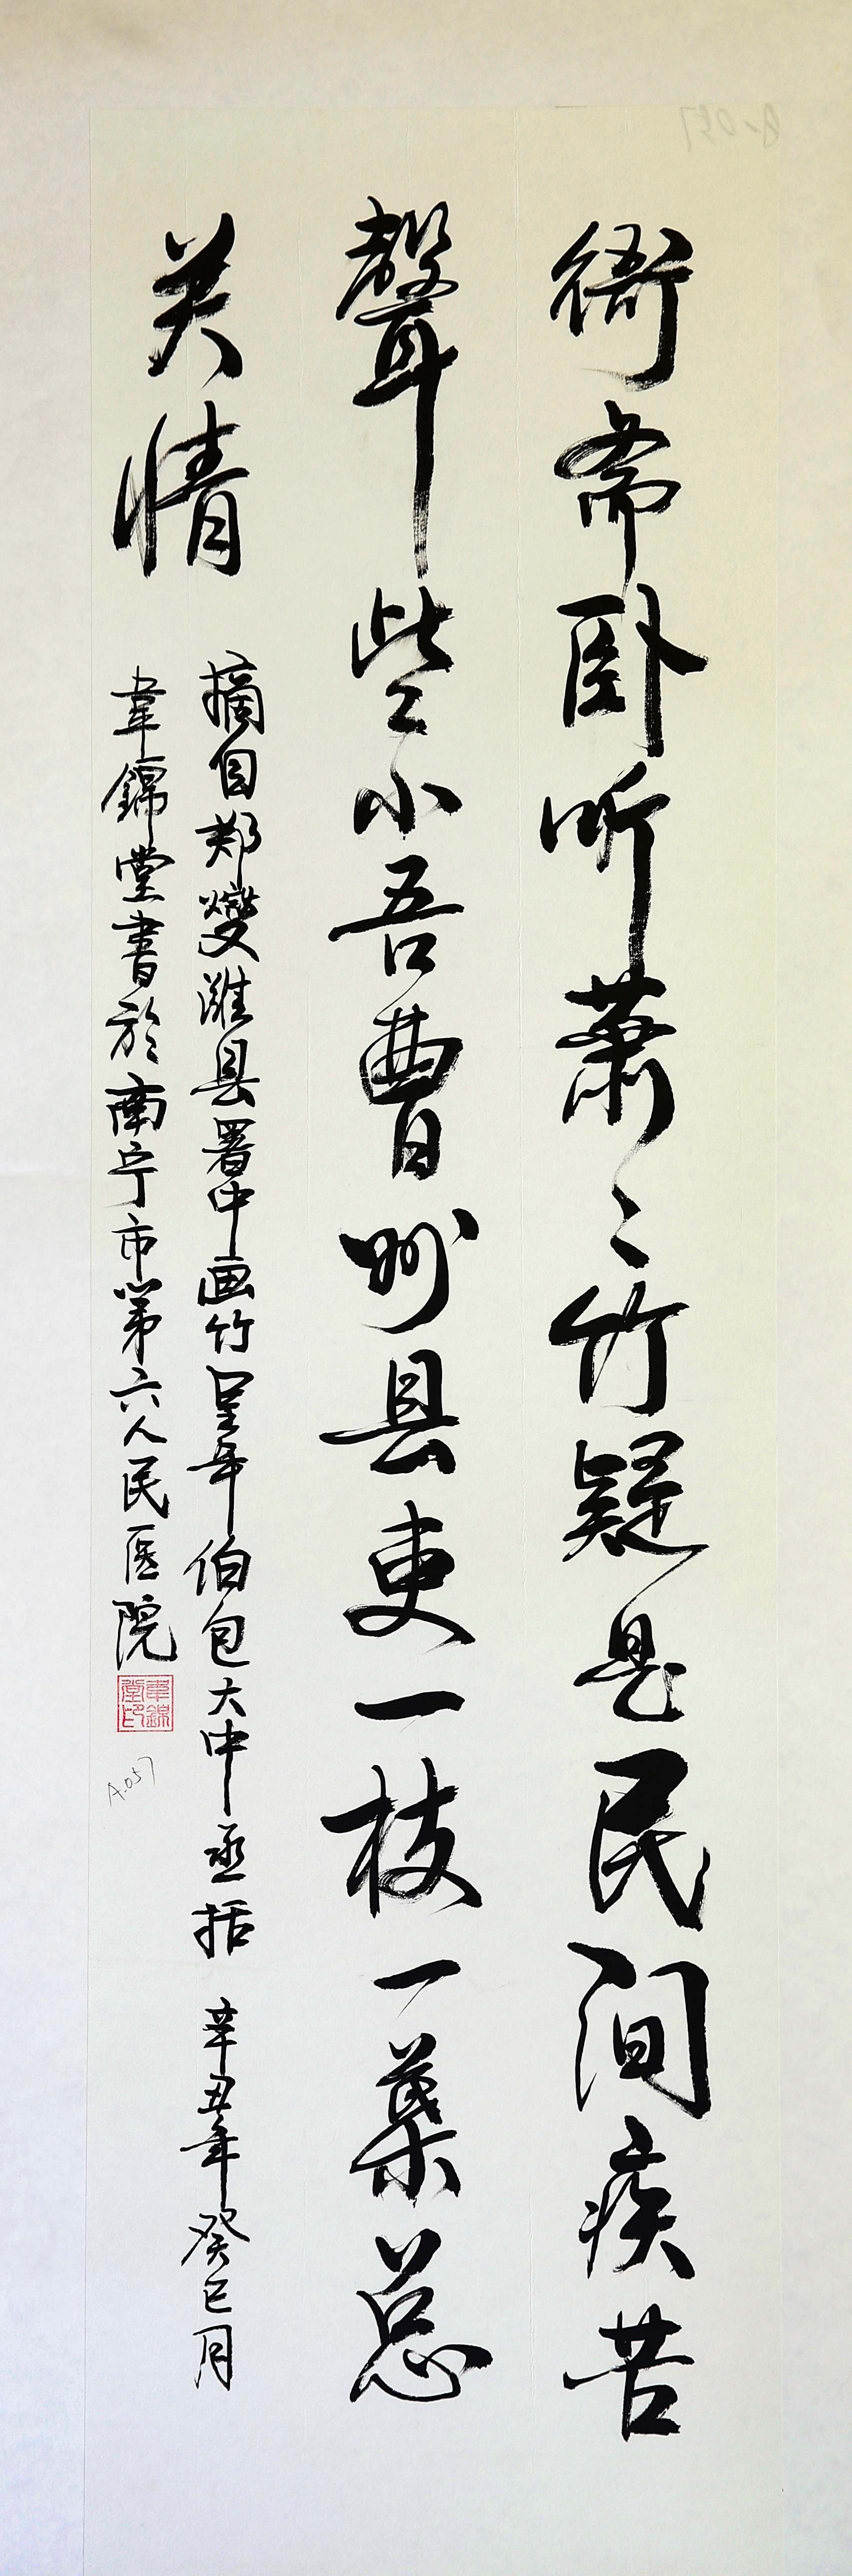 衙斋卧听萧〻竹疑是民间疾苦
聲些小吾曹州县吏一枝一葉总
关情
摘自郑燮潍县署中画竹呈年伯包大中丞括 辛丑年癸巳月
韋錦堂書於南宁市第六人民医院
韋錦堂印
A.057